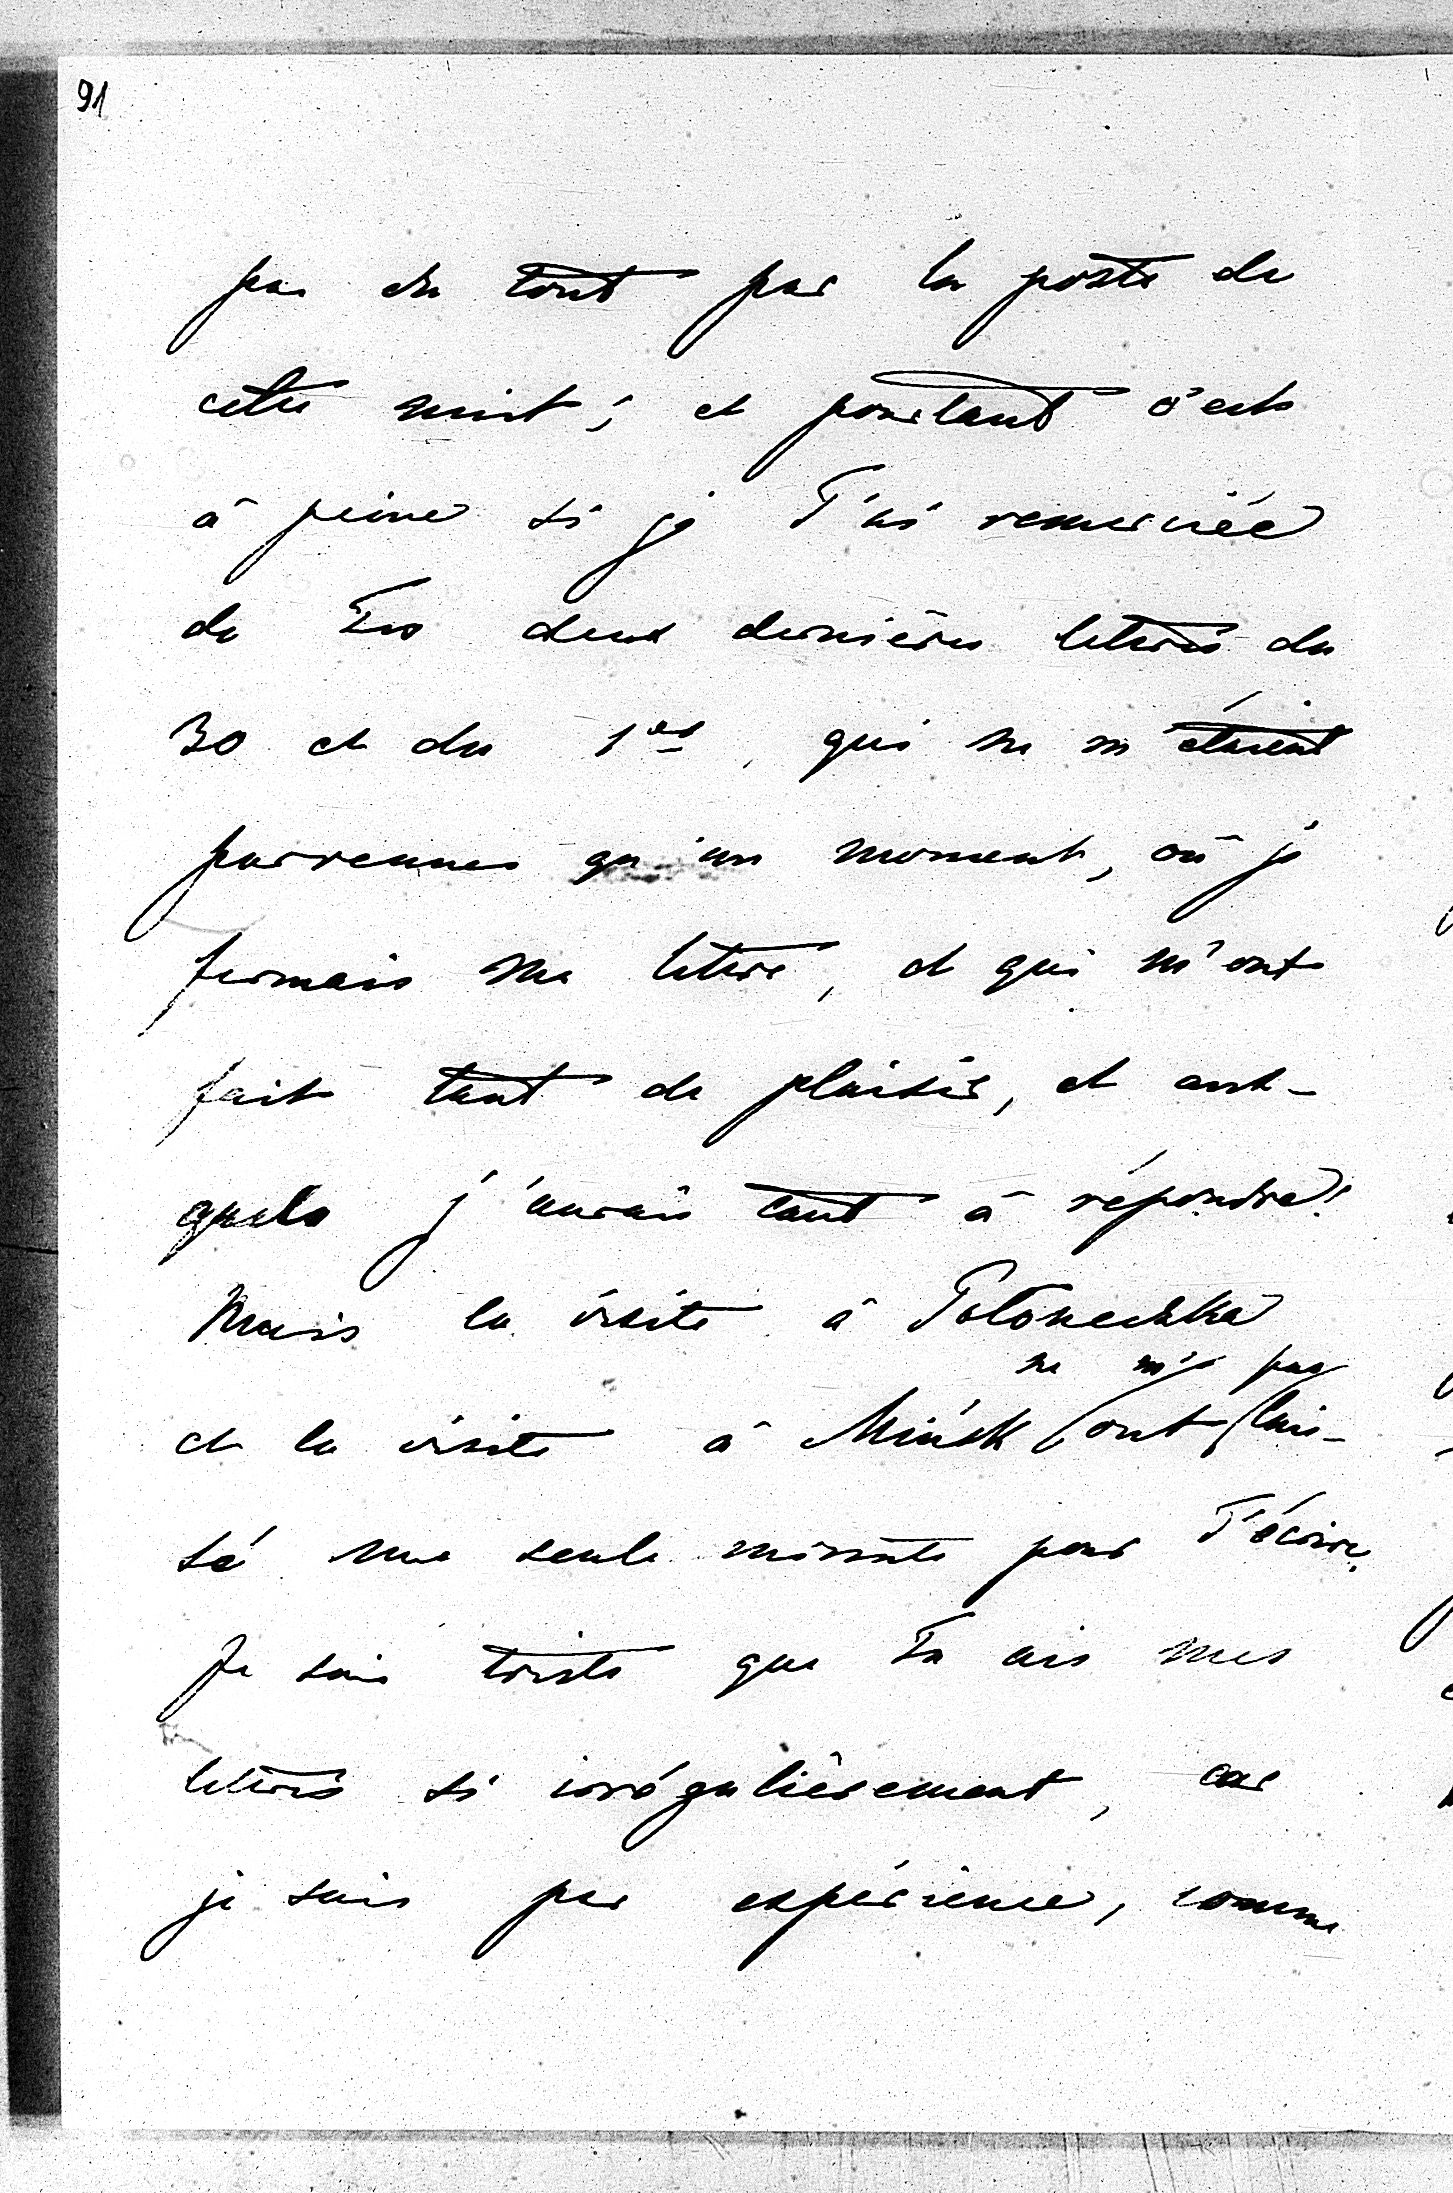 91
pas du tout par la poste de
cette nuit; et pourtant c'est
à peine si je T'ai remerciée
de Tes deux dernières lettres du
30 et du 1er, qui ne m'étaient
parvenues qu'un moment, où je
fermais ma lettre, et qui m'ont
fait tant de plaisir, et aux-
quels j'aurais tant à répondre!
Mais la visite à Potoneschka
ne m' pas
et la visite à Mińsk ont lais-
sé une seule minute pour T'écrire.
Je suis triste que Tu ais mes
lettres si irrégulièrement, car
je sais par expérience, comme